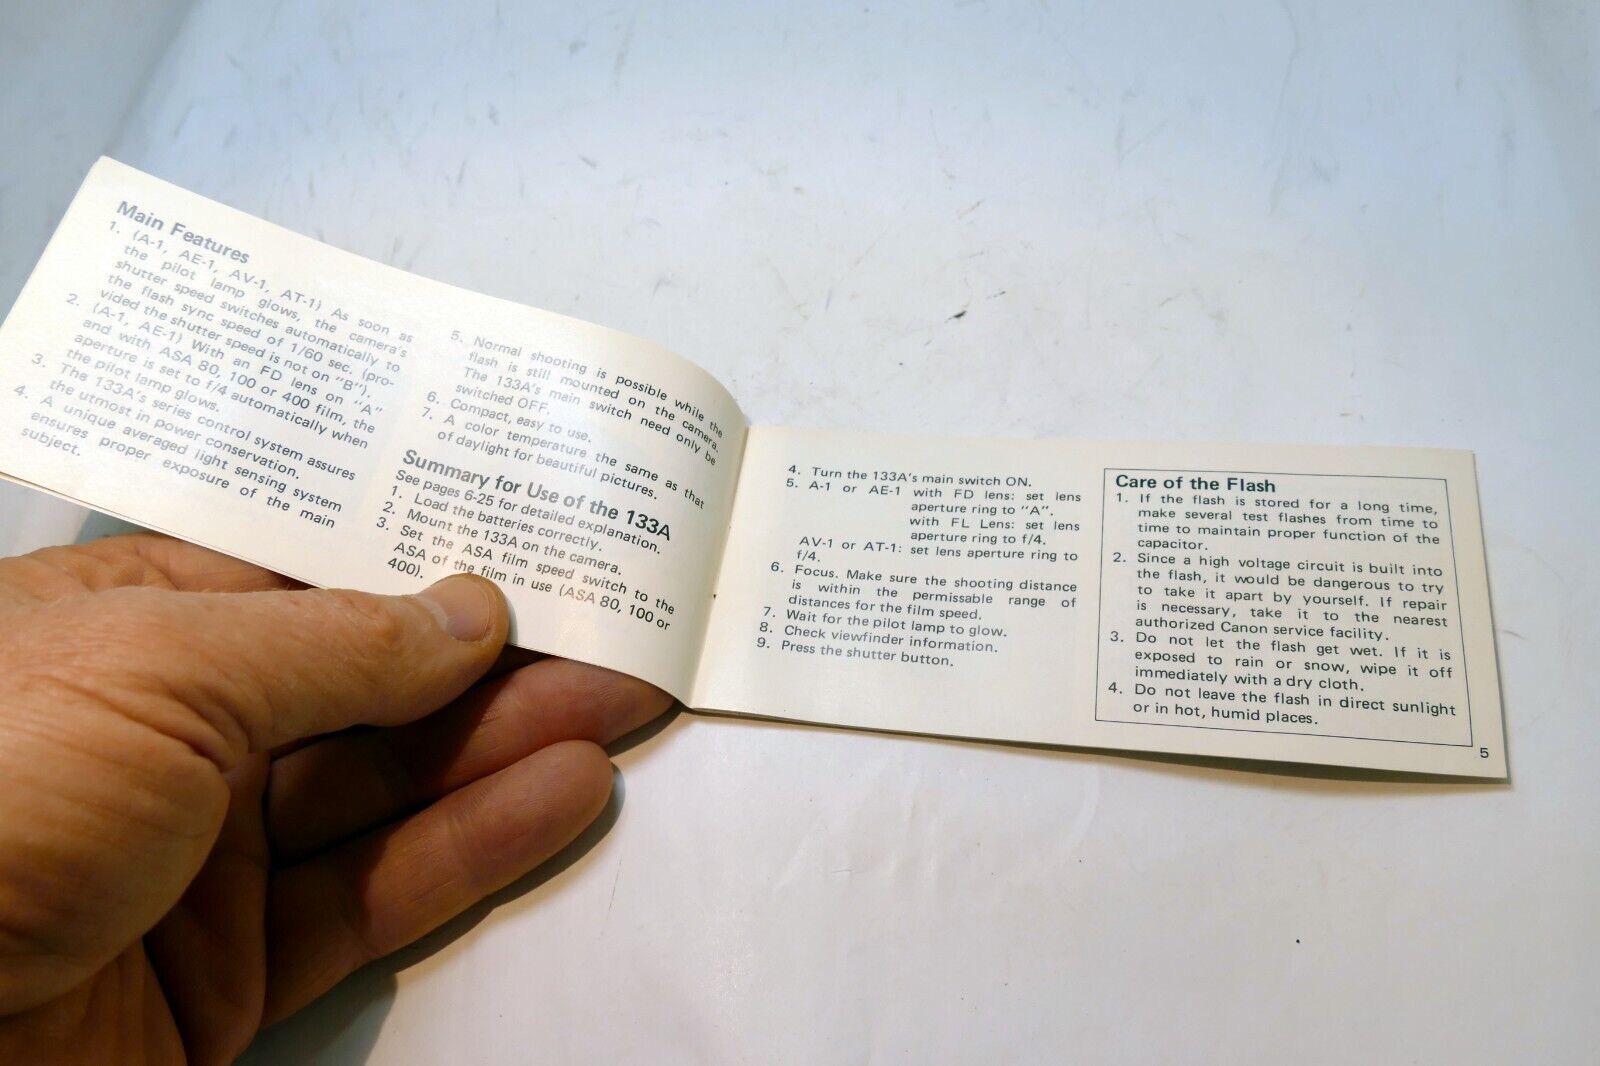 Main Features
1. (A-1, AE-1, AV-1, AT-1) As soon as
the pilot lamp glows, the camera's
shutter speed switches automatically to
the flash sync speed of 1/60 sec. (pro-
vided the shutter speed is not on "B").
2. (A-1, AE-1) With an FD lens on "A"
and with ASA 80, 100 or 400 film, the
aperture is set to f/4 automatically when
the pilot lamp glows.
3. The 133A's series control system assures
the utmost in power conservation.
4. A unique averaged light sensing system
ensures proper exposure of the main
subject.
5. Normal shooting is possible while the
flash is still mounted on the camera.
The 133A's main switch need only be
switched OFF.
6. Compact, easy to use.
7. A color temperature the same as that
of daylight for beautiful pictures.
Summary for Use of the 133A
See pages 6-25 for detailed explanation.
1. Load the batteries correctly.
2. Mount the 133A on the camera.
3. Set the ASA film speed switch to the
ASA of the film in use (ASA 80, 100 or
400).
4. Turn the 133A's main switch ON.
5. A-1 or AE-1 with FD lens: set lens
aperture ring to "A".
with FL Lens: set lens
aperture ring to f/4.
AV-1 or AT-1: set lens aperture ring to
f/4.
6. Focus. Make sure the shooting distance
is within the permissable range of
distances for the film speed.
7. Wait for the pilot lamp to glow.
8. Check viewfinder information.
9. Press the shutter button.
Care of the Flash
1. If the flash is stored for a long time,
make several test flashes from time to
time to maintain proper function of the
capacitor.
2. Since a high voltage circuit is built into
the flash, it would be dangerous to try
to take it apart by yourself. If repair
is necessary, take it to the nearest
authorized Canon service facility.
3. Do not let the flash get wet. If it is
exposed to rain or snow, wipe it off
immediately with a dry cloth.
4. Do not leave the flash in direct sunlight
or in hot, humid places.
5